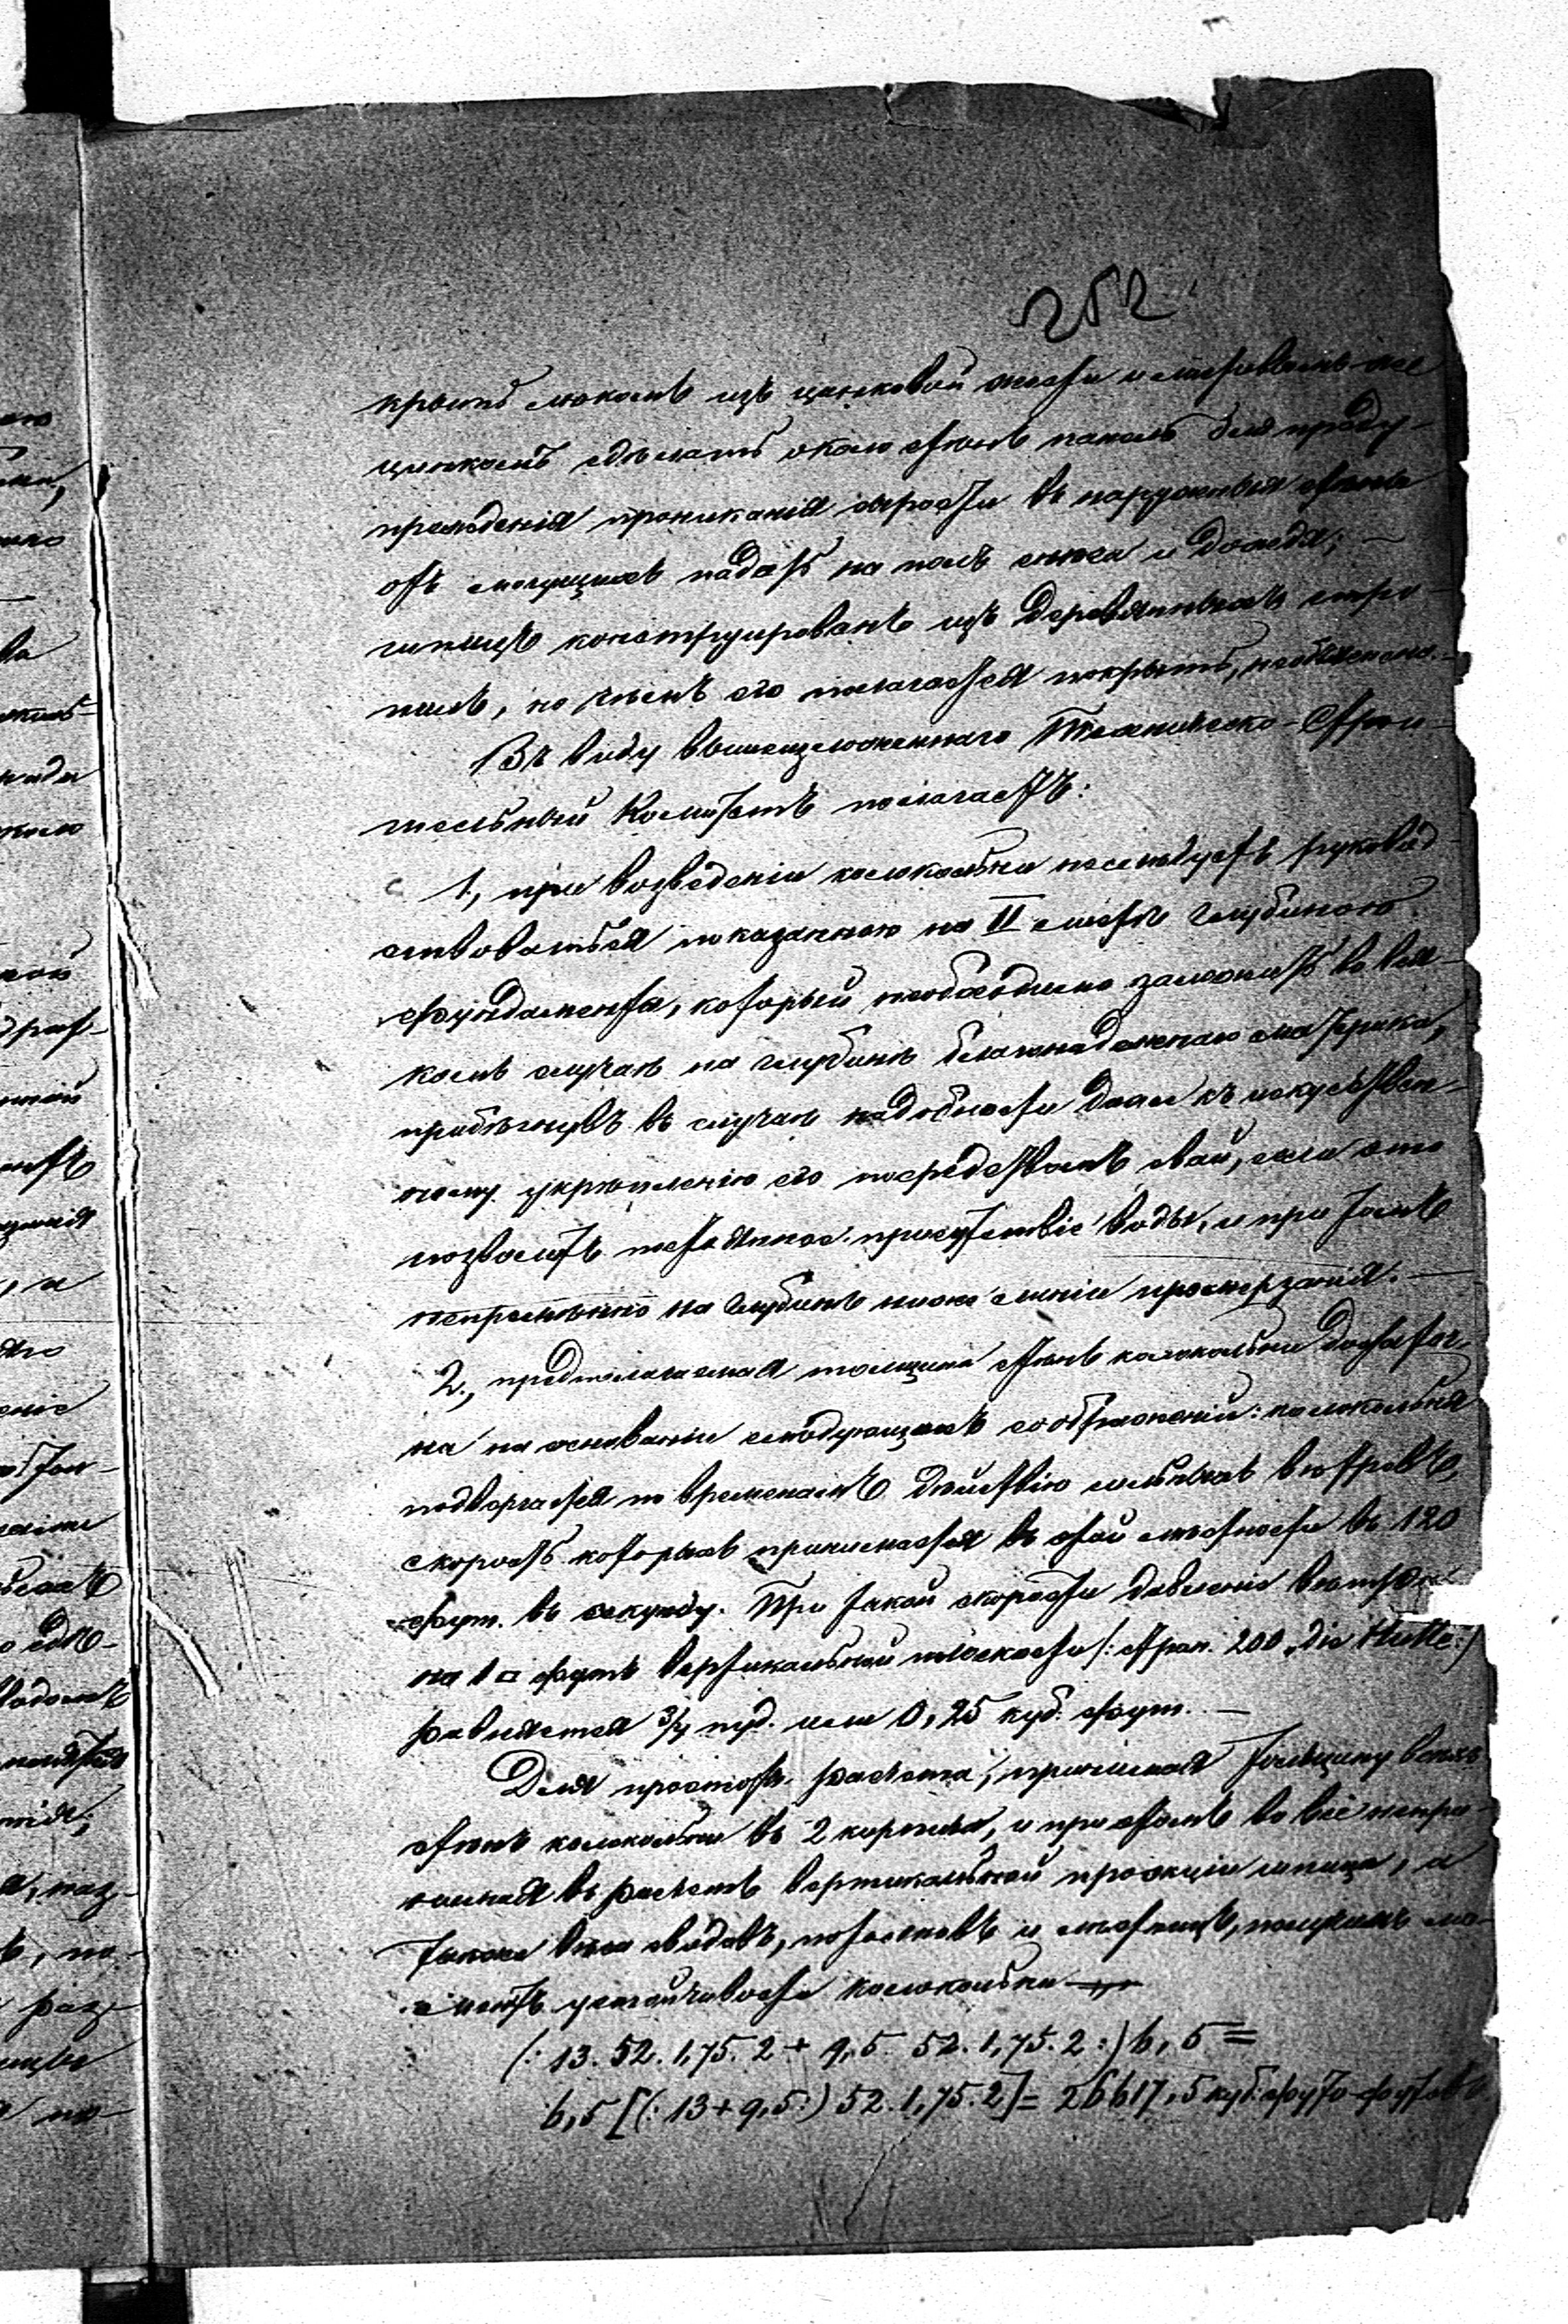 252
крыть люкомъ изъ цинковой жести и листовымъ-же
цинкомъ сдѣлать около стѣнъ панель для преду-
прежденія прониканія сырости въ наружныя стѣны
отъ могущихъ падать на полъ снѣга и дождя; —
шпицъ конструированъ изъ деревянныхъ стро-
пилъ, но чѣмъ его полагается покрыть, необъяснено. —
Въ виду вышеизложеннаго Техническо-Строи-
тельный Комитетъ полагаетъ:
1, при возведеніи колокольни послѣдуетъ руковод-
ствоваться показанною на II листѣ глубиною
фундамента, который необходимо заложить во вся-
комъ случаѣ на глубинѣ благонадежнаго материка,
прибѣгнувъ въ случаѣ надобности даже къ искусствен-
ному укрѣпленію его посредствомъ свай, если это
позволитъ постоянное присутствіе воды, и при томъ
непремѣнно на глубинѣ ниже линіи промерзанія. —
2, предполагаемая толщина стѣнъ колокольни достаточ-
на на основаніи слѣдующихъ соображеній: колокольня
подвергается по временамъ дѣйствію сильныхъ вѣтровъ,
скорость которыхъ принимается въ этой мѣстности въ 120
фут. въ секунду. При такой скорости давленіе вѣтра
на 1 □ футъ вертикальной плоскости /: стран. 200 „die Hütte :/
равняется 3/4 пуд. или 0,25 куб. фут. —
Для простоты расчета, принимая толщину всѣхъ
стѣнъ колокольни въ 2 кирпича, и при этомъ во всё непри-
нимая въ расчетъ вертикальной проэкціи шпица, и
также вѣса сводовъ, потолковъ и лѣстницъ, получимъ мо-
ментъ устойчивости колокольни
(: 13. 52. 1,75. 2 + 9,5. 52. 1,75. 2 :) 6,5 =
6,5 [(: 13 + 9,5 :) 52. 1,75. 2] = 26617,5 куб. футо-футовъ